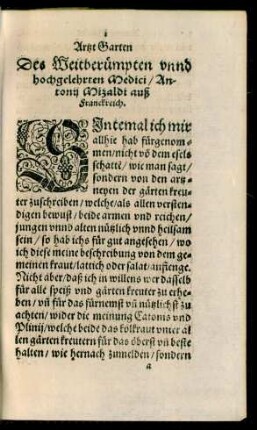 1
Artzt Garten
Des Weitberümpten vnnd
hochgelehrten Medici / An-
tonij Mizaldi auß
Franckreich.
SIntemal ich mir
allhie hab fürgenom-
men / nicht vō dem esels
schatte / wie man sagt /
sondern von den artz-
neyen der gärten kreu-
ter zuschreiben / welche / als allen versten-
digen bewust / beide armen vnd reichen /
jungen vnnd alten nützlich vnnd heilsam
sein / so hab ichs für gut angesehen / wo
ich diese meine beschreibung von dem ge-
meinen kraut / lattich oder salat / anfienge.
Nicht aber / daß ich in willens wer dasselb
für alle speiß vnd gärten kreuter zu erhe-
ben / vn̄ für das fürnemst vn̄ nützlichst zu
achten / wider die meinung Catonis vnd
Plinij / welche beide das kölkraut vnter al
len gärten kreutern für das öberst vn̄ beste
halten / wie hernach zumelden / sondern
a